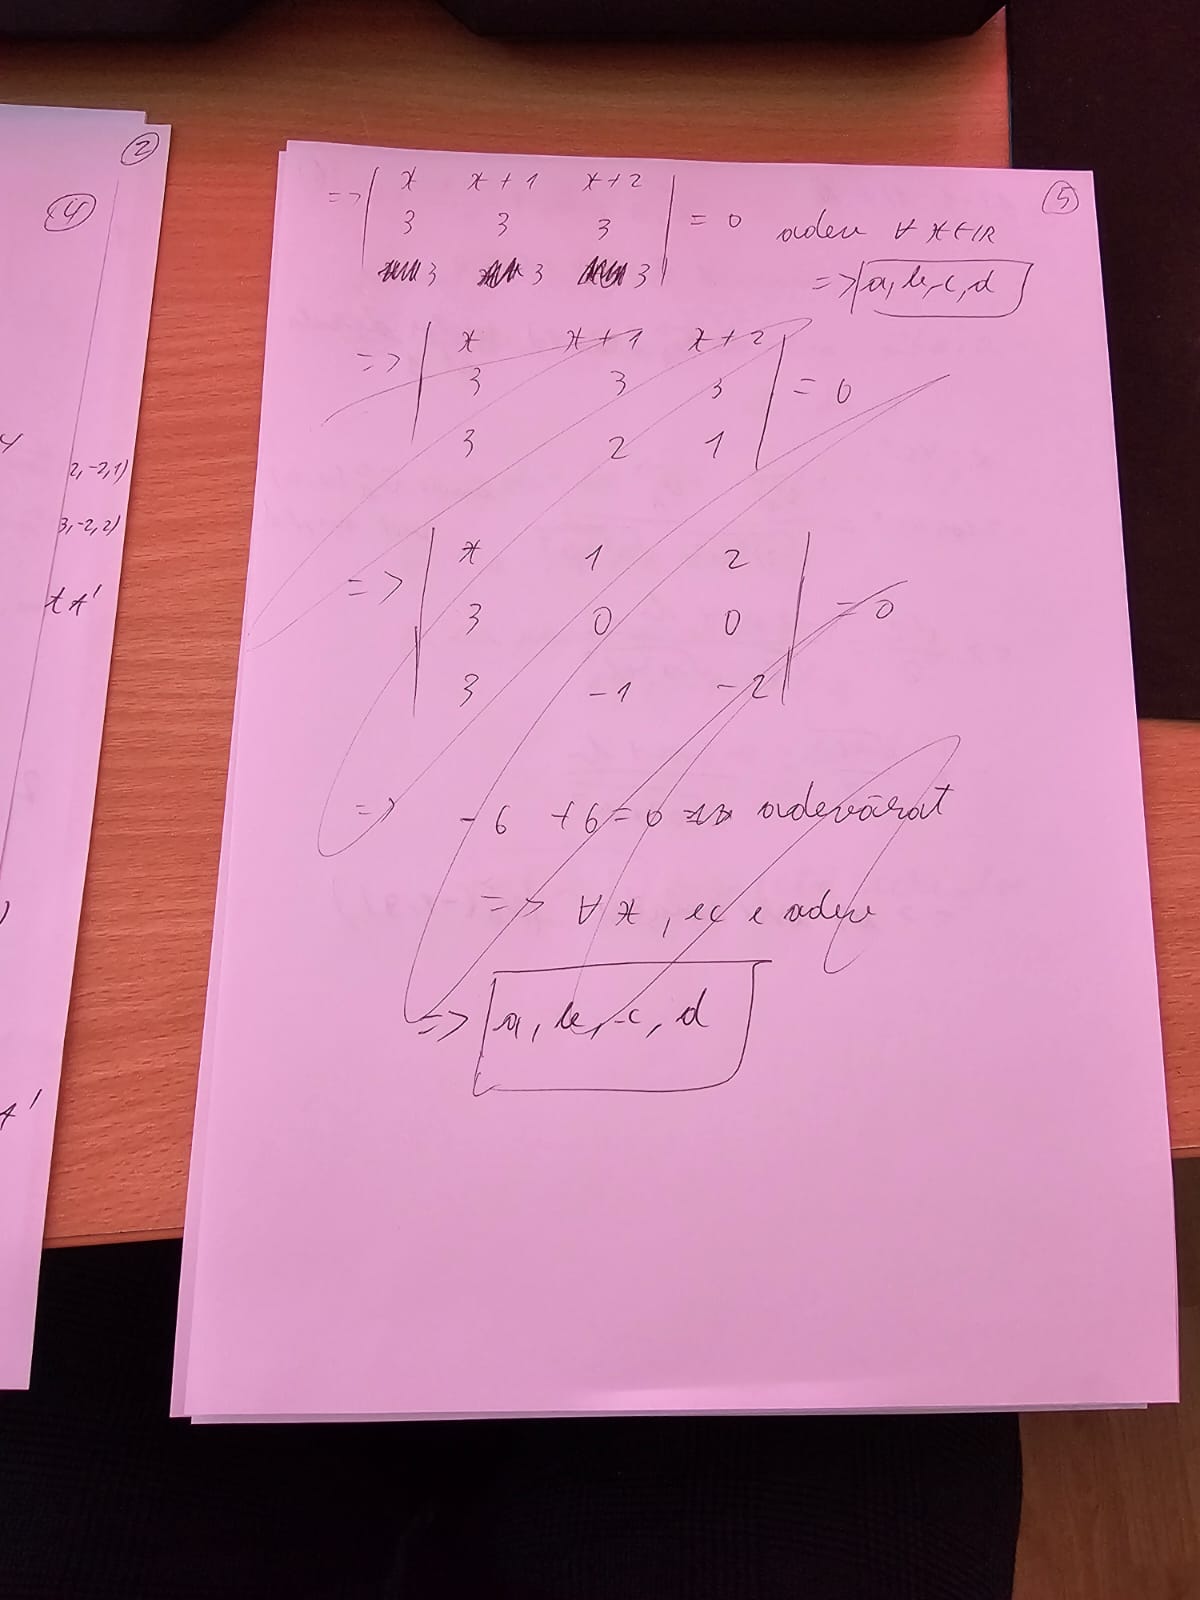 2
4
2, -2, 1)
3, -2, 2)
A'
A'
5
=> | x x+1 x+2 |
| 3 3 3 | = 0 adev ∀ x ∈ IR
| 3 3 3 | => a, b, c, d
=> | x x+1 x+2 |
| 3 3 3 | = 0
| 3 2 1 |
=> | x 1 2 |
| 3 0 0 | = 0
| 3 -1 -2 |
=> -6 +6 = 0 adevărat
=> ∀ x, ec e adev
=> a, b, c, d